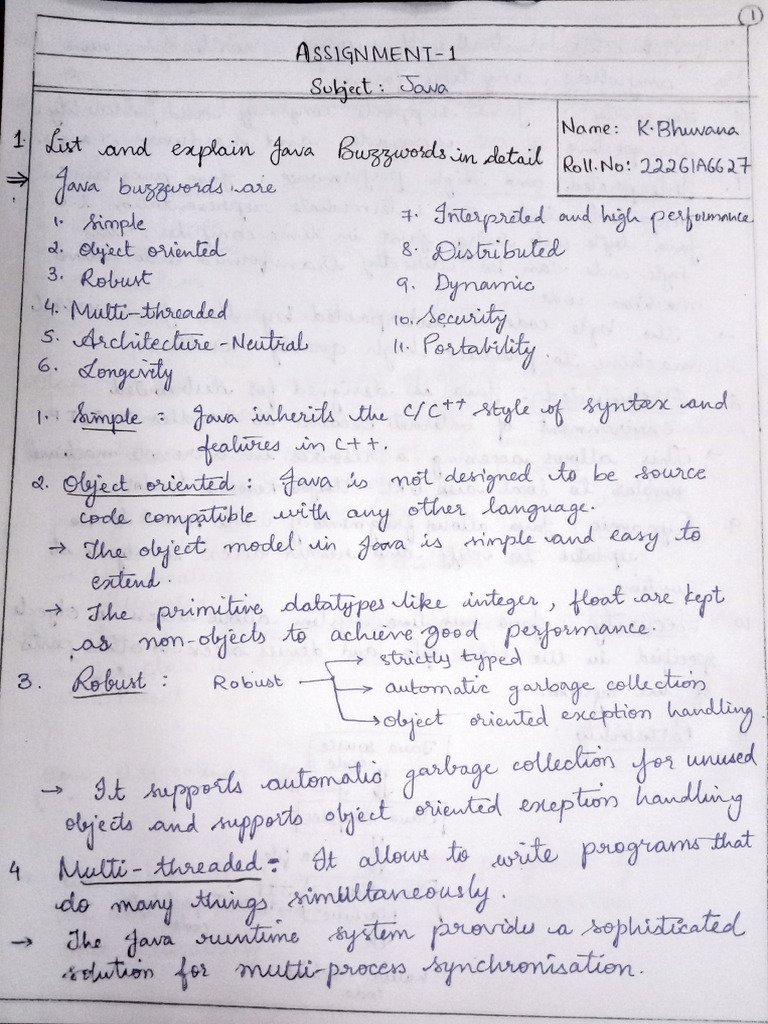 1
ASSIGNMENT-1
Subject: Java
Name: K.Bhuvana
Roll.No: 22261A6627
1. List and explain Java Buzzwords in detail
⇒ Java buzzwords are
1. Simple
2. Object oriented
3. Robust
4. Multi-threaded
5. Architecture-Neutral
6. Longevity
7. Interpreted and high performance
8. Distributed
9. Dynamic
10. Security
11. Portability
1. Simple : Java inherits the C/C++ style of syntax and
features in C++.
2. Object oriented : Java is not designed to be source
code compatible with any other language.
→ The object model in Java is simple and easy to
extend.
→ The primitive datatypes like integer, float are kept
as non-objects to achieve good performance.
3. Robust : Robust → strictly typed
→ automatic garbage collection
→ object oriented exception handling
→ It supports automatic garbage collection for unused
objects and supports object oriented exeption handling
4 Multi-threaded: It allows to write programs that
do many things simultaneously.
→ The Java runtime system provides a sophisticated
solution for multi-process synchronisation.